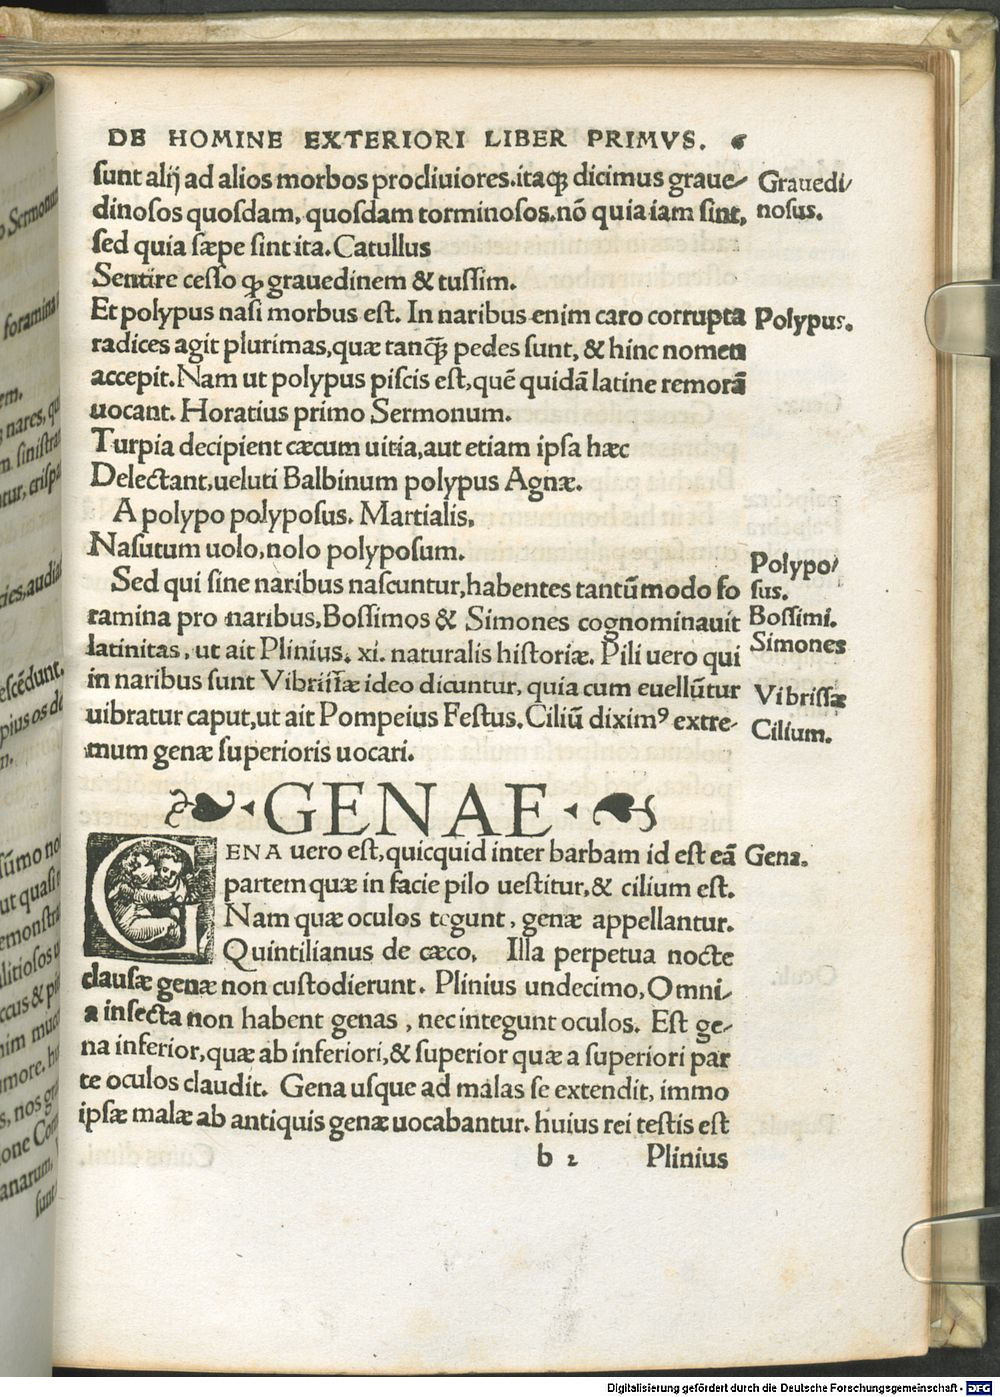 DE HOMINE EXTERIORI LIBER PRIMVS. 6
sunt alij ad alios morbos procliuiores.itaqꝫ dicimus graue-
dinosos quosdam, quosdam torminosos.nō quia iam sint,
sed quia sæpe sint ita. Catullus
Sentire cesso qꝫ grauedinem & tussim.
Et polypus nasi morbus est. In naribus enim caro corrupta
radices agit plurimas,quæ tanqꝫ pedes sunt, & hinc nomen
accepit. Nam ut polypus piscis est,quē quidā latine remorā
uocant. Horatius primo Sermonum.
Turpia decipient cæcum uitia,aut etiam ipsa hæc
Delectant,ueluti Balbinum polypus Agnæ.
A polypo polyposus. Martialis,
Nasutum uolo,nolo polyposum.
Sed qui sine naribus nascuntur,habentes tantūmodo fo
ramina pro naribus,Bossimos & Simones cognominauit
latinitas, ut ait Plinius. xi. naturalis historiæ. Pili uero qui
in naribus sunt Vibrissæ ideo dicuntur, quia cum euellūtur
uibratur caput,ut ait Pompeius Festus. Ciliū diximꝰ extre-
mum genæ superioris uocari.
Grauedi-
nosus.
Polypus.
Polypo-
sus.
Bossimi.
Simones
Vibrissæ
Cilium.
GENAE
GENA uero est,quicquid inter barbam id est eā
partem quæ in facie pilo uestitur,& cilium est.
Nam quæ oculos tegunt, genæ appellantur.
Quintilianus de cæco, Illa perpetua nocte
clausæ genæ non custodierunt. Plinius undecimo, Omni-
a insecta non habent genas, nec integunt oculos. Est ge-
na inferior,quæ ab inferiori,& superior quæ a superiori par
te oculos claudit. Gena usque ad malas se extendit, immo
ipsæ malæ ab antiquis genæ uocabantur. huius rei testis est
Gena.
b 2 Plinius
Digitalisierung gefördert durch die Deutsche Forschungsgemeinschaft - DFG